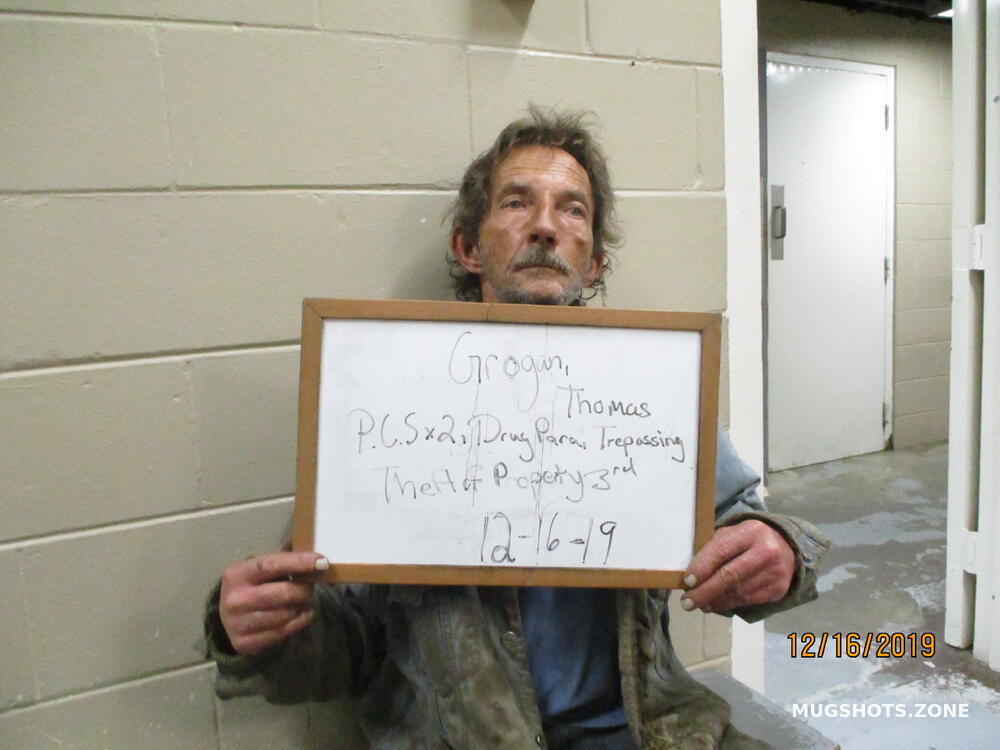 Grogan,
Thomas
P.C.S x 2, Drug Para, Trepassing
Theft of Property 3rd
12-16-19
12/16/2019
MUGSHOTS.ZONE